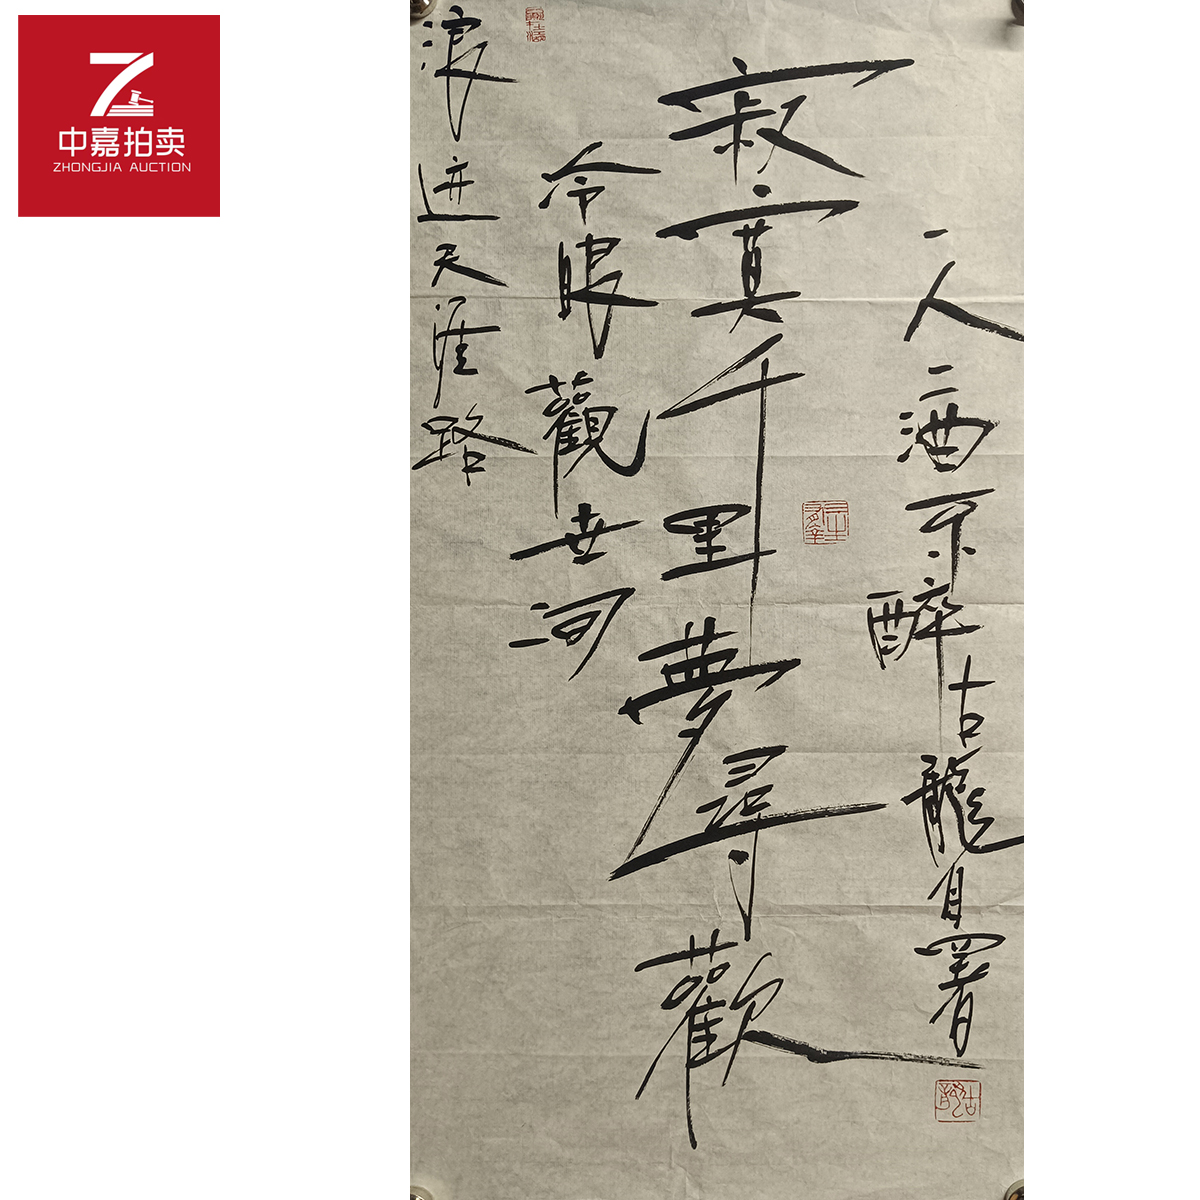 中嘉拍卖
ZHONGJIA AUCTION
浪迹天涯路
冷眼觀世河
寂寞千里夢尋歡
一人二酒不醉古龍自署
古龍